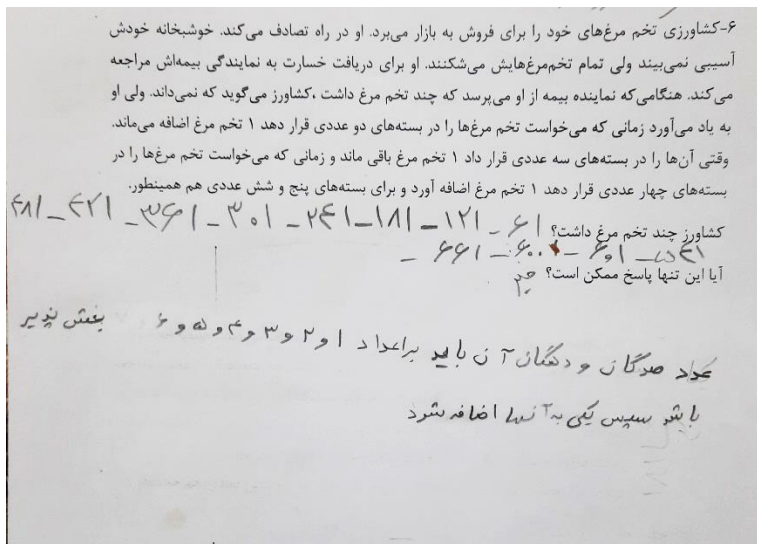 ۶-کشاورزی تخم مرغ‌های خود را برای فروش به بازار می‌برد. او در راه تصادف می‌کند. خوشبخانه خودش
آسیبی نمی‌بیند ولی تمام تخم‌مرغ‌هایش می‌شکنند. او برای دریافت خسارت به نمایندگی بیمه‌اش مراجعه
می‌کند. هنگامی‌که نماینده بیمه از او می‌پرسد که چند تخم مرغ داشت ،کشاورز می‌گوید که نمی‌داند. ولی او
به یاد می‌آورد زمانی که می‌خواست تخم مرغ‌ها را در بسته‌های دو عددی قرار دهد ۱ تخم مرغ اضافه می‌ماند.
وقتی آن‌ها را در بسته‌های سه عددی قرار داد ۱ تخم مرغ باقی ماند و زمانی که می‌خواست تخم مرغ‌ها را در
بسته‌های چهار عددی قرار دهد ۱ تخم مرغ اضافه آورد و برای بسته‌های پنج و شش عددی هم همینطور.
کشاورز چند تخم مرغ داشت؟ ۶۱ - ۱۲۱ - ۱۸۱ - ۲۴۱ - ۳۰۱ - ۳۶۱ - ۴۲۱ - ۴۸۱
۶۰۱ - ۶۶۱ -
آیا این تنها پاسخ ممکن است؟ خیر
عدد صدگان و دهگان آن باید بر اعداد ۱ و ۲ و ۳ و ۴ و ۵ و ۶ بخش پذیر
باشد سپس یکی به آنها اضافه شود